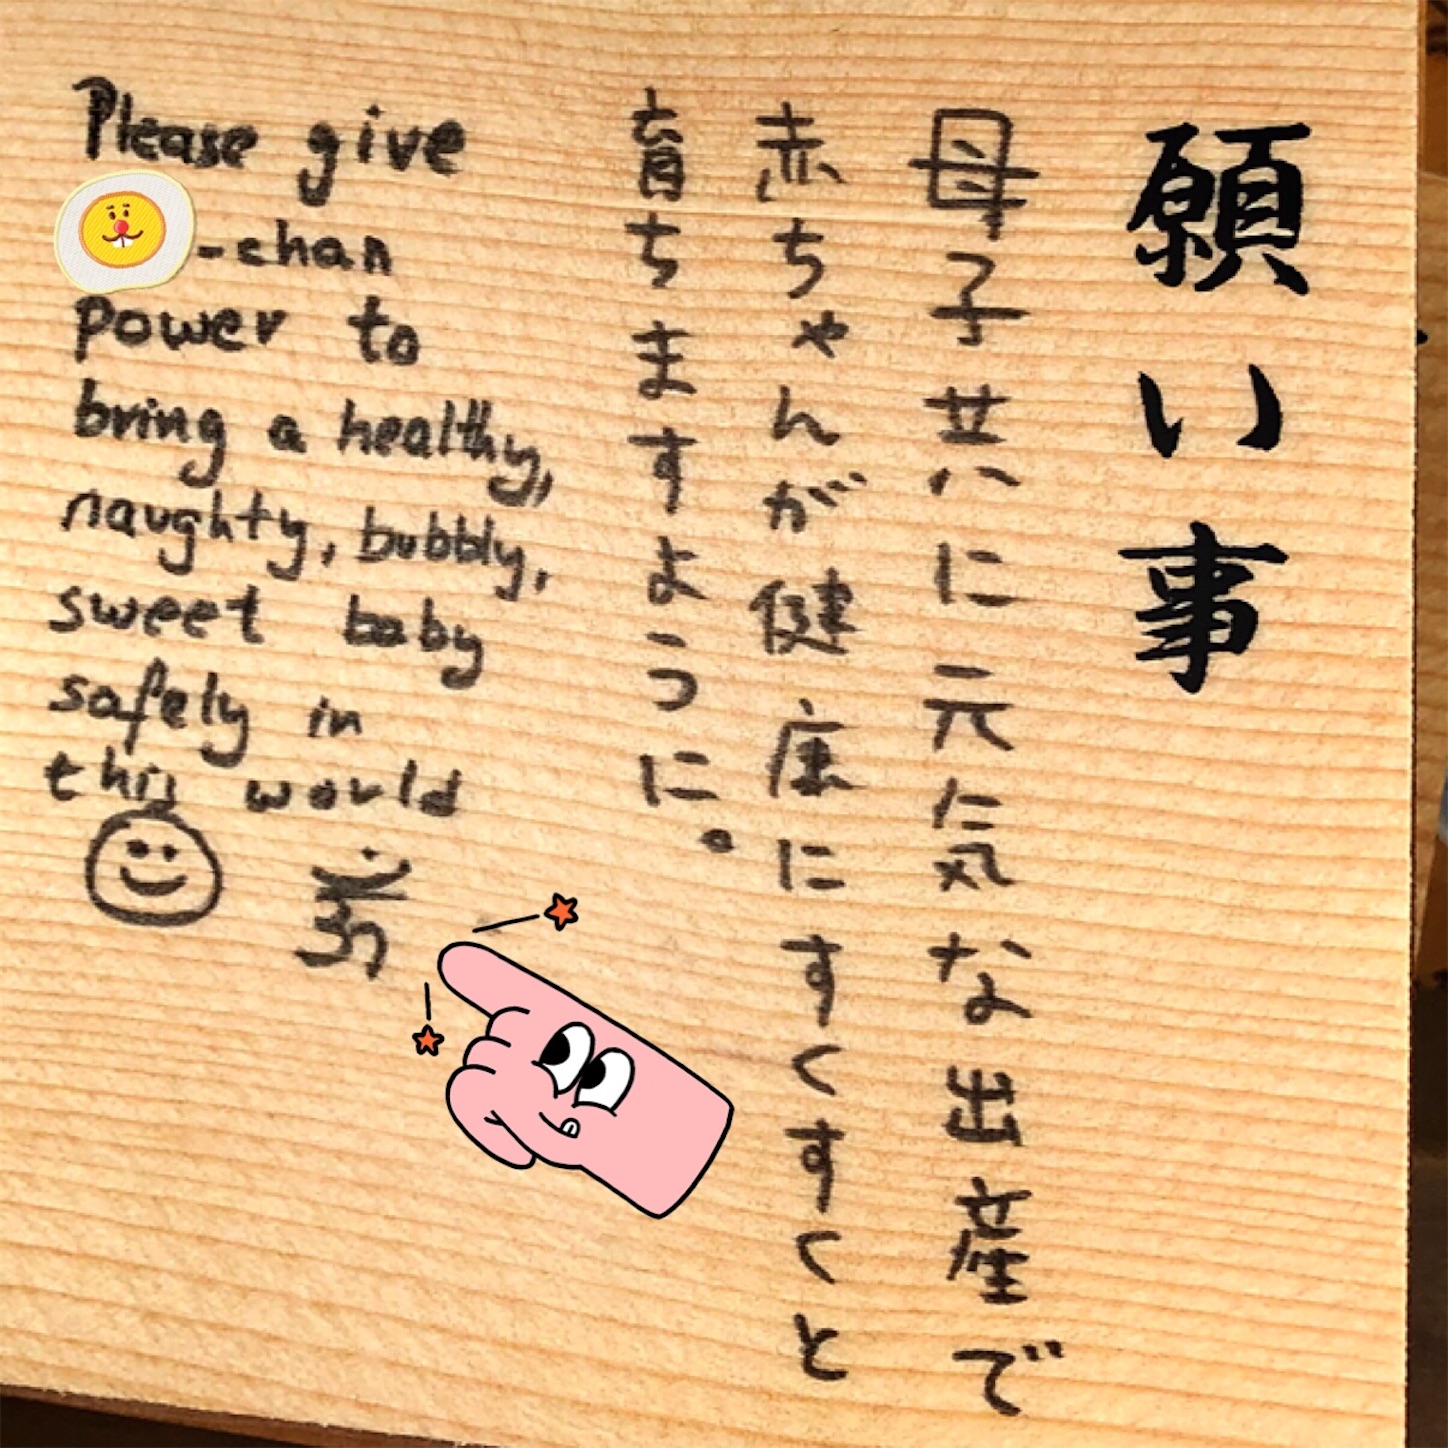 願い事
母子共に元気な出産で
赤ちゃんが健康にすくすくと
育ちますように。
Please give
-chan
power to
bring a healthy,
naughty, bubbly,
sweet baby
safely in
this world